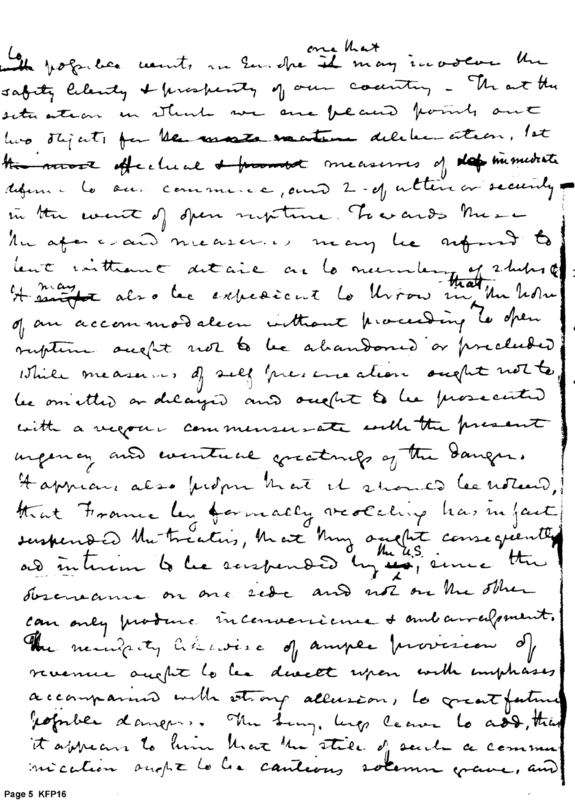 to
one that
with possible events in Europe it may involve the
safety liberty & prosperity of our country - That the
situation in which we are placed points out
two objects for the more mature deliberation, 1st
the most effectual & prompt measures of def immediate
defence to our commerce, and 2 of ulterior security
in the event of open rupture. Towards these
the aforesaid measures may be referred to
but without detail as to number of ships &
may
that
It might also be expedient to throw in, the hope
of an accommodation without proceeding to open
rupture ought not to be abandoned or precluded
while measures of self preservation ought not to
be omitted or delayed and ought to be prosecuted
with a vigour commensurate with the present
urgency and eventual greatness of the danger.
It appears also proper that it should be noticed,
that France by formally violating has in fact
suspended the treaties, that they ought consequently
the U.S.
ad interim to be suspended by us, since the
observance on one side and not on the other
can only produce inconvenience & embarrassment.
The necessity likewise of ample provision of
revenue ought to be dwelt upon with emphases
accompanied with strong allusions, to great future
possible dangers. The Secy. begs leave to add, that
it appears to him that the stile of such a commu
nication ought to be cautious solemn grave, and
Page 5 KFP16